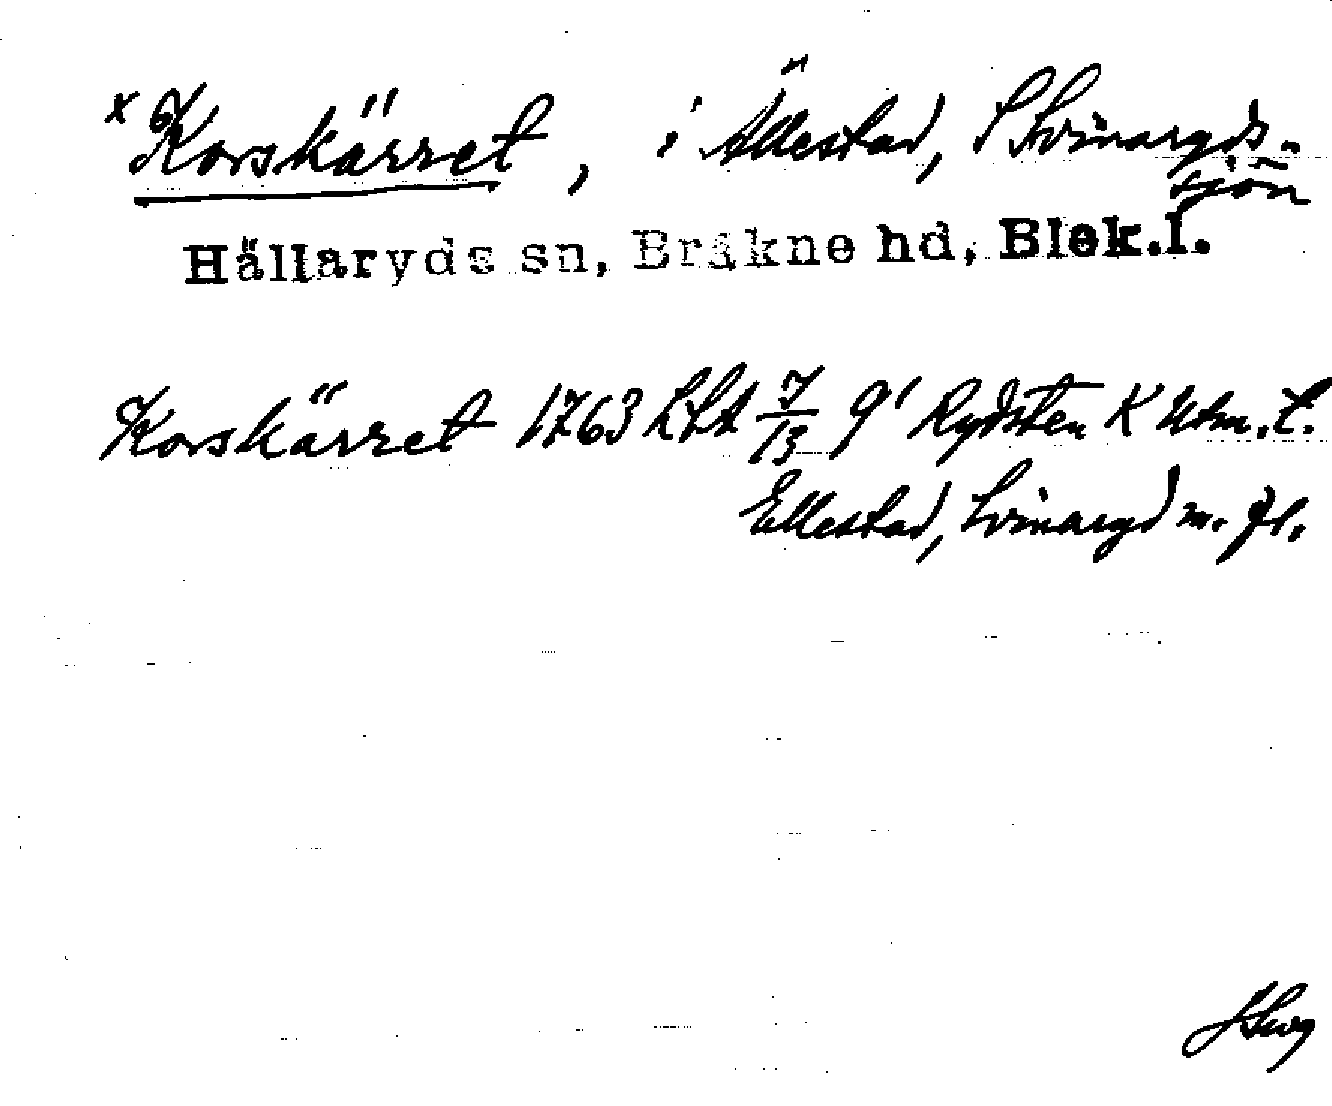 x Korskärret, i Ällestad, S Svinaryds-
sjön
Hällaryds sn, Bräkne hd, Blek.l.
Korskärret 1763 LSA 7/13 9' Rydsten K Utm.t.
Ellestad, Svinaryd m. fl.